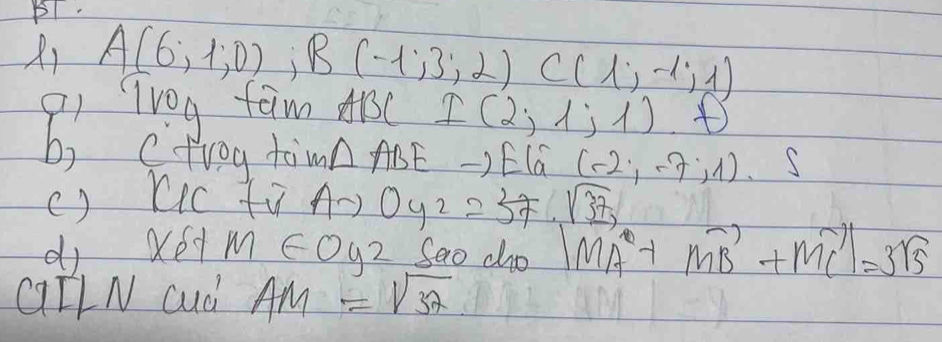 BT.
1, A(6;1;0); B(-1;3;2) C(1;-1;1)
a, Trog tâm ABC I(2;1;1). Đ
b, C trog tâm Δ ABE → E là (-2;-7;1). S
c) K/C từ A → Oyz = 37. √37,
d, Xét M ∈ Oyz sao cho |MA + MB + MC| = 3√5
GTLN của AM = √37.